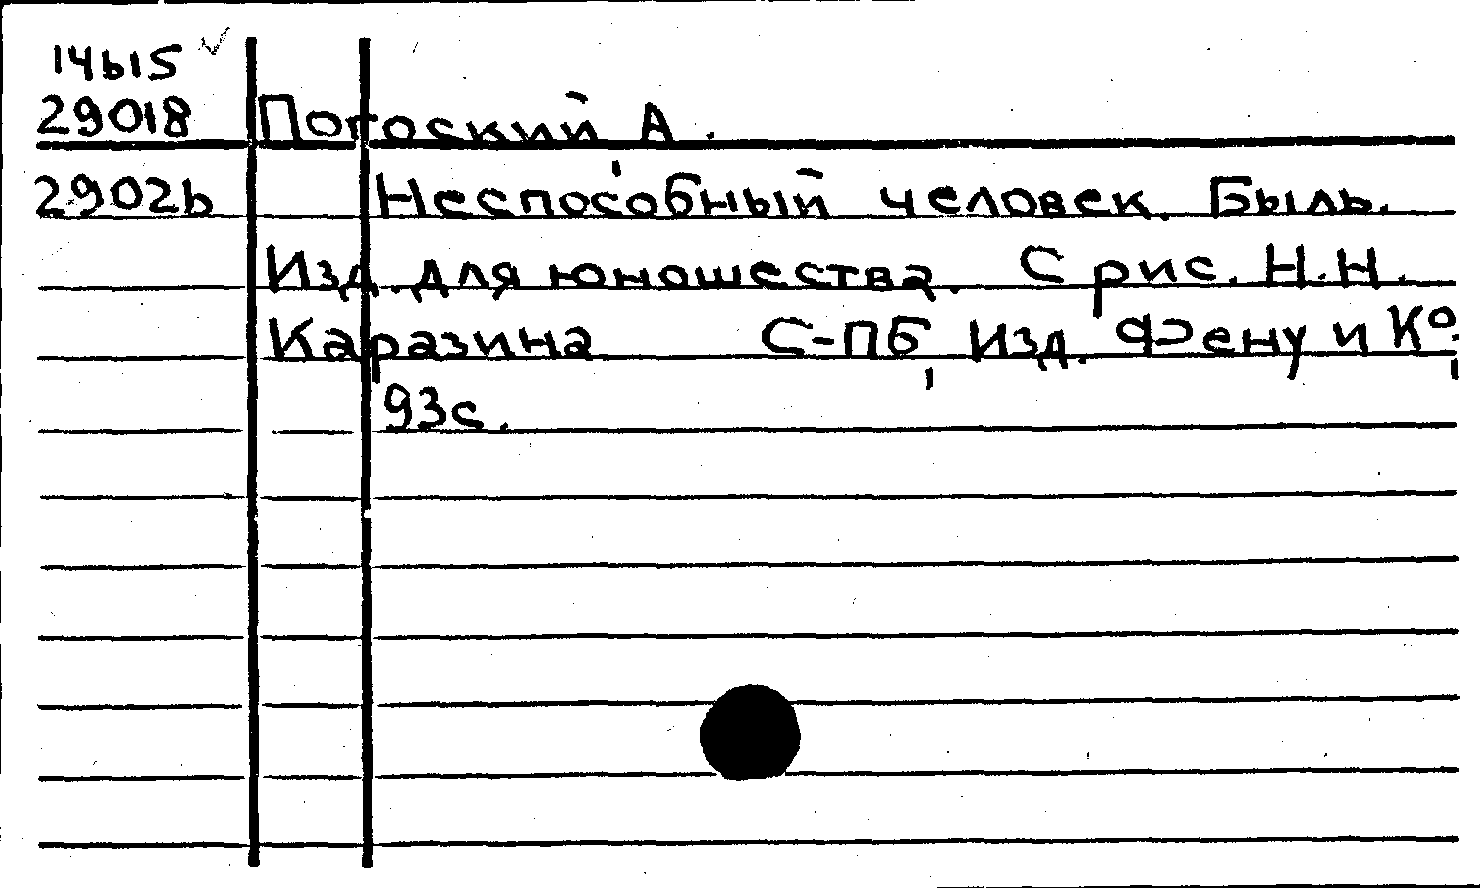 14615
29018 Погоский А.
29026 Неспособный человек. Быль.
Изд. для юношества. С рис. Н.Н.
Каразина С-ПБ, Изд. Фену и Ко,
93с.